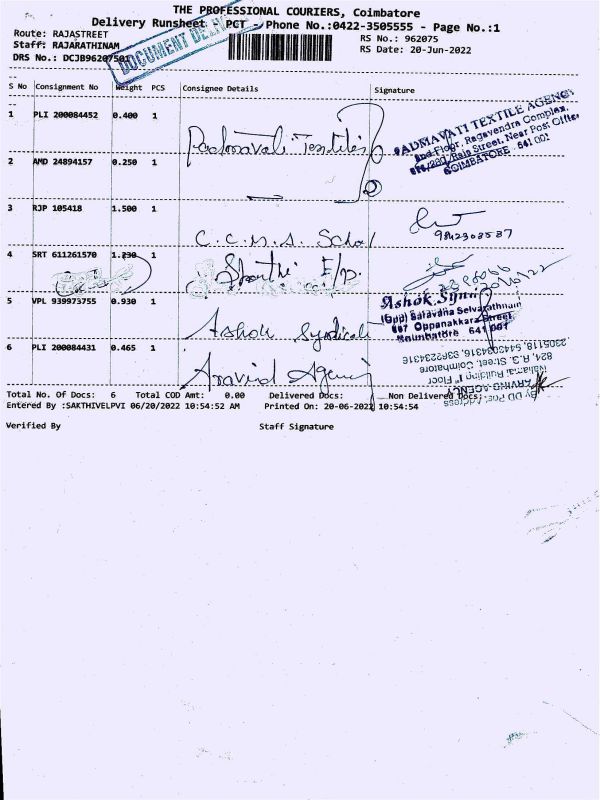 THE PROFESSIONAL COURIERS, Coimbatore
Delivery Runsheet PCT - Phone No.:0422-3505555 - Page No.:1
Route: RAJASTREET
RS No.: 962075
Staff: RAJARATHINAM
RS Date: 20-Jun-2022
DRS No.: DCJB96207501
DOCUMENT
S No Consignment No Weight PCS Consignee Details Signature
1 PLI 200084452 0.400 1
Padmavati Textiles
PADMAVATI TEXTILE AGENCY
2nd Floor, Ragavendra Complex,
Raja Street, Near Post Office
COIMBATORE - 641 001
2 AMD 24894157 0.250 1
3 RJP 105418 1.500 1
C.C.M.A. School
4 SRT 611261570 1.230 1
Shanthi E/p.
5 VPL 939973755 0.930 1
Ashok Syndicate
Ashok Synd
(Opp) Saravana Selvarathnam
687 Oppanakkara Street,
Coimbatore 641 001
6 PLI 200084431 0.465 1
Aravind Agency
2305118, 544304316, 9362234316
824, R.S. Street, Coimbatore
Nallamai Building 1st Floor
ARVIND AGENCY
Total No. Of Docs: 6 Total COD Amt: 0.00 Delivered Docs: Non Delivered Docs:
Entered By :SAKTHIVELPVI 06/20/2022 10:54:52 AM Printed On: 20-06-2022 10:54:54
Verified By Staff Signature